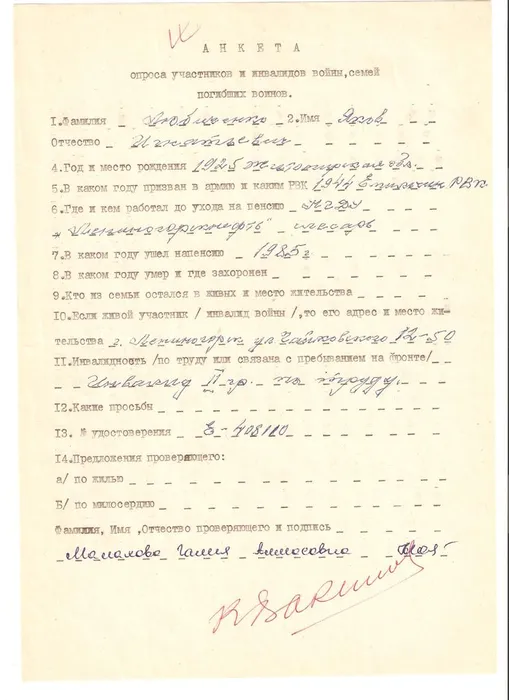 АНКЕТА
опроса участников и инвалидов войны,семей
погибших воинов.
I.Фамилия 2.Имя Яков
Отчество Игнатьевич
4.Год и место рождения 1925 Житомирская обл.
5.В каком году призван в армию и каким РВК 1944 РВК
6.Где и кем работал до ухода на пенсию НГДУ
"Лениногорскнефть" слесарь
7.В каком году ушел напенсию 1985г
8.В каком году умер и где захоронен
9.Кто из семьи остался в живых и место жительства
IO.Если живой участник / инвалид войны/,то его адрес и место жи-
тельства г. Лениногорск ул Чайковского 12-50
II.Инвалидность /по труду или связана с пребыванием на фронте/
Инвалид II гр. по труду.
I2.Какие просьбы
I3. № удостоверения Е-408110
I4.Предложения проверяющего:
а/ по жилью
Б/ по милосердию
Фамилия, Имя ,Отчество проверяющего и подпись
Малахова Галия